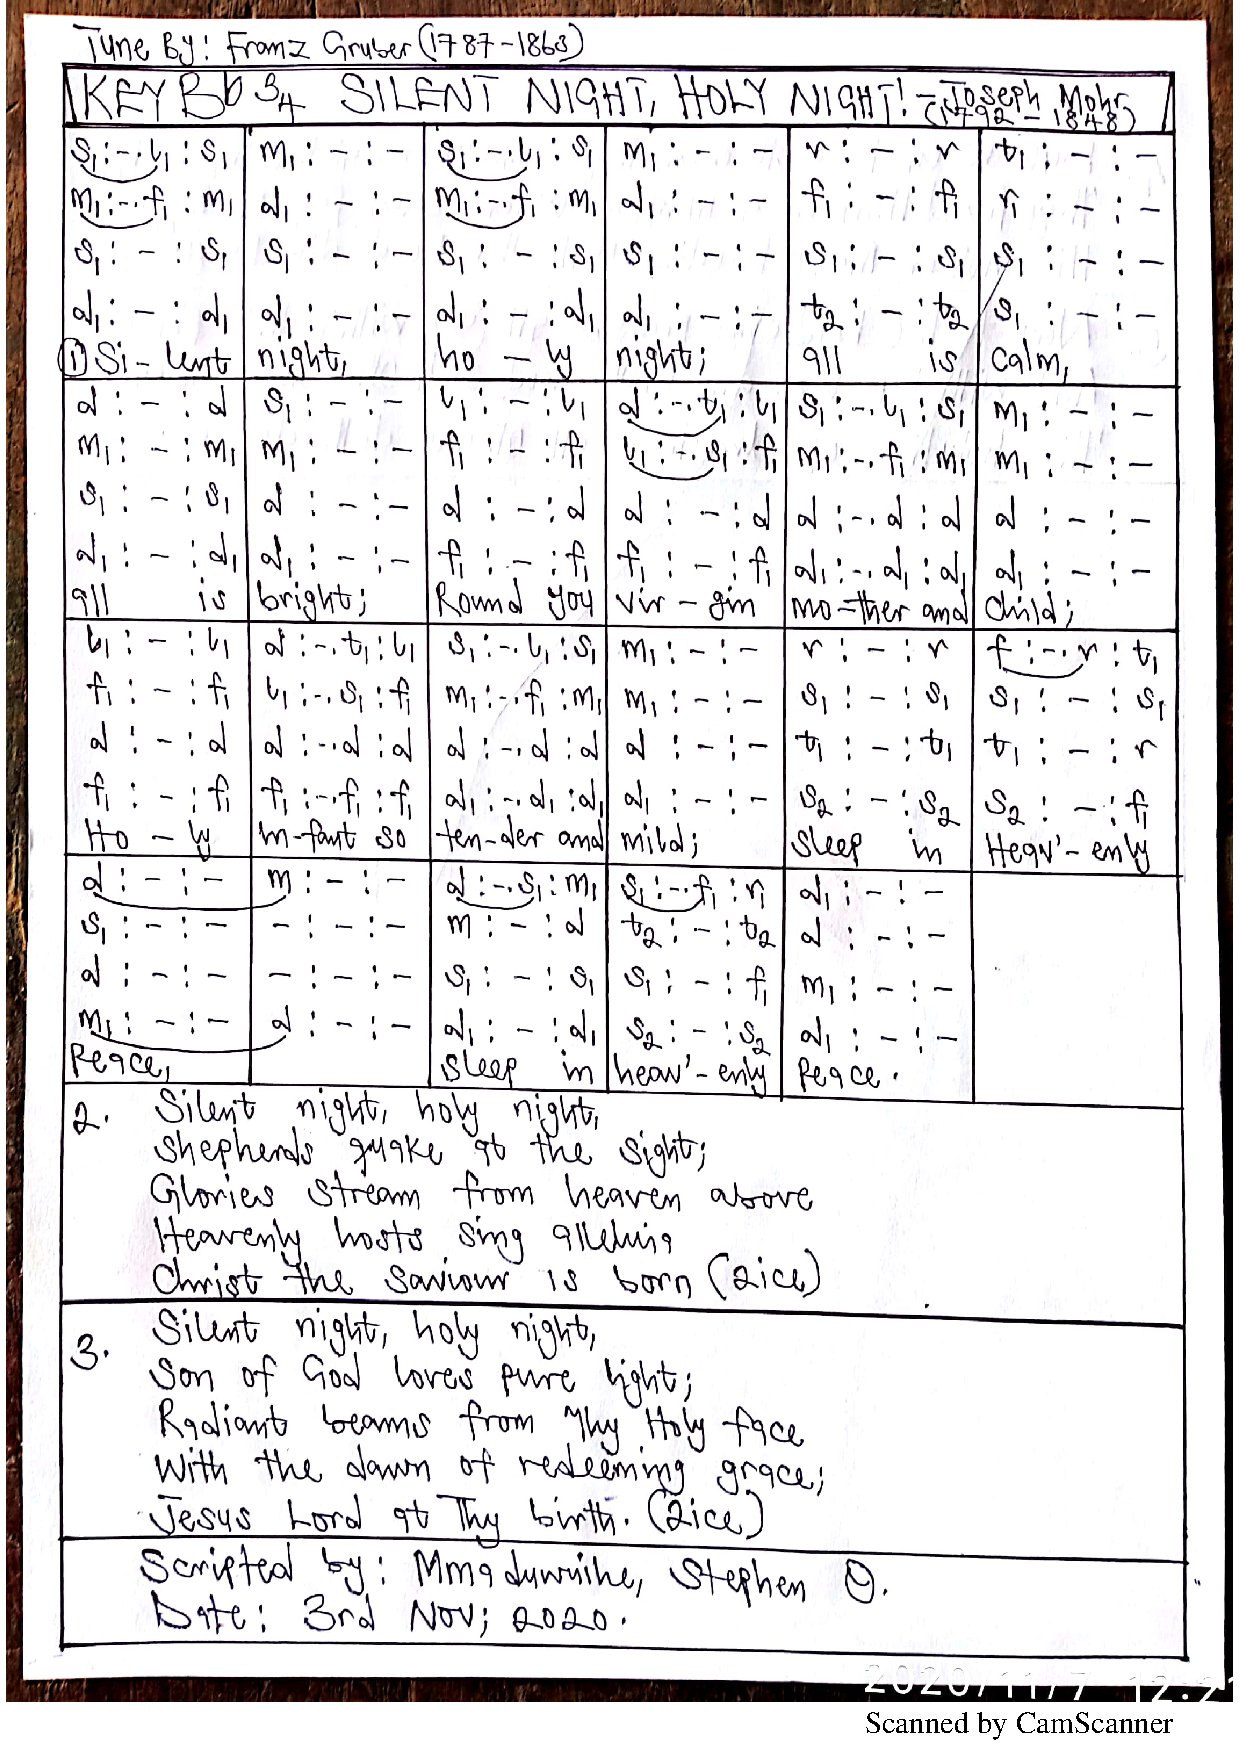 Tune By: Franz Gruber (1787-1863)
KEY Bb 3/4 SILENT NIGHT, HOLY NIGHT! - Joseph Mohr
(1792 - 1848)
s₁:-.l₁:s₁ | m₁:-:- | s₁:-.l₁:s₁ | m₁:-:- | r:-:r | t₁:-:-
m₁:-.f₁:m₁ | d₁:-:- | m₁:-.f₁:m₁ | d₁:-:- | f₁:-:f₁ | r₁:-:-
s₁:-:s₁ | s₁:-:- | s₁:-:s₁ | s₁:-:- | s₁:-:s₁ | s₁:-:-
d₁:-:d₁ | d₁:-:- | d₁:-:d₁ | d₁:-:- | t₂:-:t₂ | s₁:-:-
① Si-lent | night, | ho-ly | night; | all is | calm,
d:-:d | s₁:-:- | l₁:-:l₁ | d:-.t₁:l₁ | s₁:-.l₁:s₁ | m₁:-:-
m₁:-:m₁ | m₁:-:- | f₁:-:f₁ | l₁:-.s₁:f₁ | m₁:-.f₁:m₁ | m₁:-:-
s₁:-:s₁ | d:-:- | d:-:d | d:-:d | d:-.d:d | d:-:-
d₁:-:d₁ | d₁:-:- | f₁:-:f₁ | f₁:-:f₁ | d₁:-.d₁:d₁ | d₁:-:-
all is | bright; | Round you | vir-gin | mo-ther and | child;
l₁:-:l₁ | d:-.t₁:l₁ | s₁:-.l₁:s₁ | m₁:-:- | r:-:r | f:-.r:t₁
f₁:-:f₁ | l₁:-.s₁:f₁ | m₁:-.f₁:m₁ | m₁:-:- | s₁:-:s₁ | s₁:-:s₁
d:-:d | d:-.d:d | d:-.d:d | d:-:- | t₁:-:t₁ | t₁:-:r
f₁:-:f₁ | f₁:-.f₁:f₁ | d₁:-.d₁:d₁ | d₁:-:- | s₂:-:s₂ | s₂:-:f₁
Ho-ly | in-fant so | ten-der and | mild; | sleep in | Heav'-enly
d:-:- | m:-:- | d:-.s₁:m₁ | s₁:-.f₁:r₁ | d₁:-:-
s₁:-:- | -:-:- | m:-:d | t₂:-:t₂ | d:-:-
d:-:- | -:-:- | s₁:-:s₁ | s₁:-:f₁ | m₁:-:-
m₁:-:- | d:-:- | d₁:-:d₁ | s₂:-:s₂ | d₁:-:-
Peace, | sleep in | heav'-enly | Peace.
2. Silent night, holy night,
Shepherds quake at the sight;
Glories stream from heaven above
Heavenly hosts sing alleluia
Christ the Saviour is born (2ice)
3. Silent night, holy night,
Son of God loves pure light;
Radiant beams from Thy Holy face
With the dawn of redeeming grace;
Jesus Lord at Thy birth. (2ice)
Scripted by: Mmaduwuike, Stephen O.
Date: 3rd Nov; 2020.
2020/11/7 12:2
Scanned by CamScanner